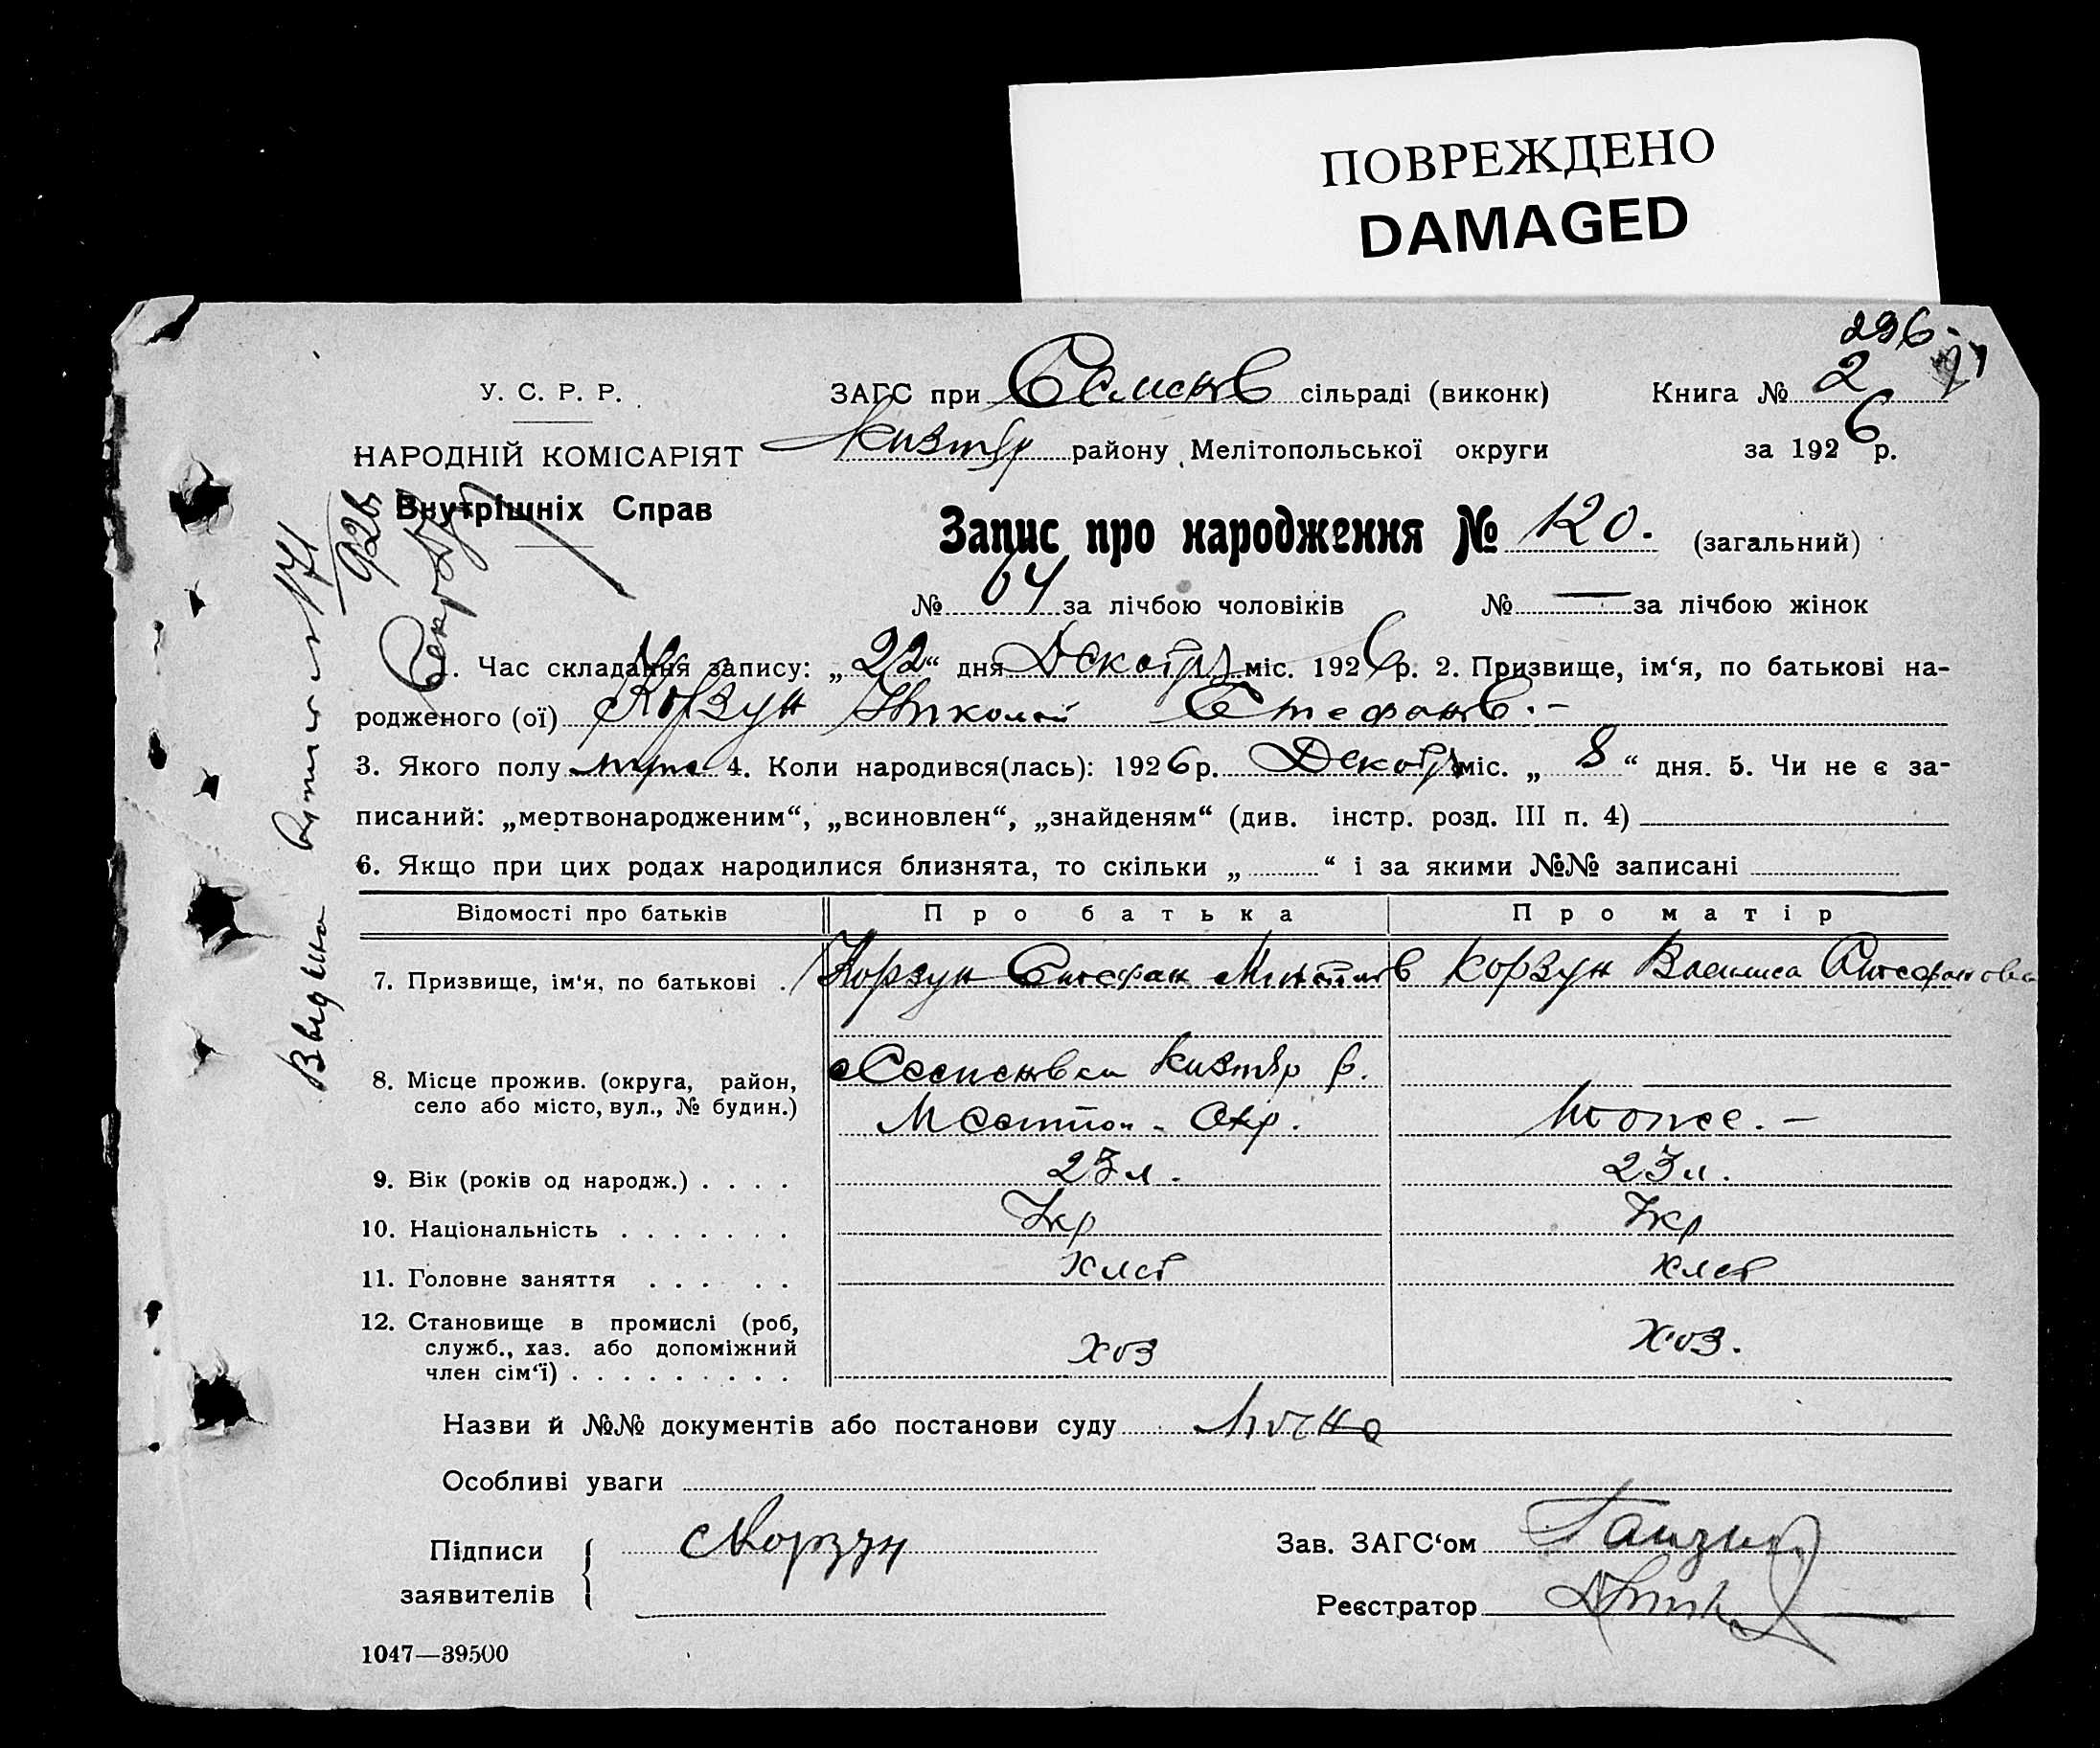 ПОВРЕЖДЕНО
DAMAGED
296
У. С. Р. Р.
ЗАГС при Семенов сільраді (виконк)
Книга № 2
НАРОДНІЙ КОМІСАРІЯТ
району Мелітопольської округи
за 1926 р.
Внутрішніх Справ
Запис про народження № 120. (загальний)
№ 64 за лічбою чоловіків № — за лічбою жінок
1. Час складання запису: „22“ дня Декабря міс. 1926 р. 2. Призвище, ім‘я, по батькові на-
родженого (ої) Корзун Николай Стефанов. –
3. Якого полу муж 4. Коли народився(лась): 1926 р. Декабр міс. „8“ дня. 5. Чи не є за-
писаний: „мертвонародженим“, „всиновлен“, „знайденям“ (див. інстр. розд. III п. 4)
6. Якщо при цих родах народилися близнята, то скільки „ “ і за якими №№ записані
Відомості про батьків Про батька Про матір
7. Призвище, ім‘я, по батькові . Корзун Стефан Корзун Василиса Стефановна
8. Місце прожив. (округа, район,
село або місто, вул., № будин.)
с Семеновка р.
Мелитоп. Окр. тоже. –
9. Вік (років од народж.) . . . . 23 л. 23 л.
10. Національність . . . . . . . Укр Укр
11. Головне заняття . . . . . хлеб хлеб
12. Становище в промислі (роб,
служб., хаз. або допоміжний
член сім‘ї) . . . . . . . . . хоз хоз.
Назви й №№ документів або постанови суду
Особливі уваги
Підписи
заявителів
С Корзун
Зав. ЗАГС‘ом
Реєстратор
1047—39500